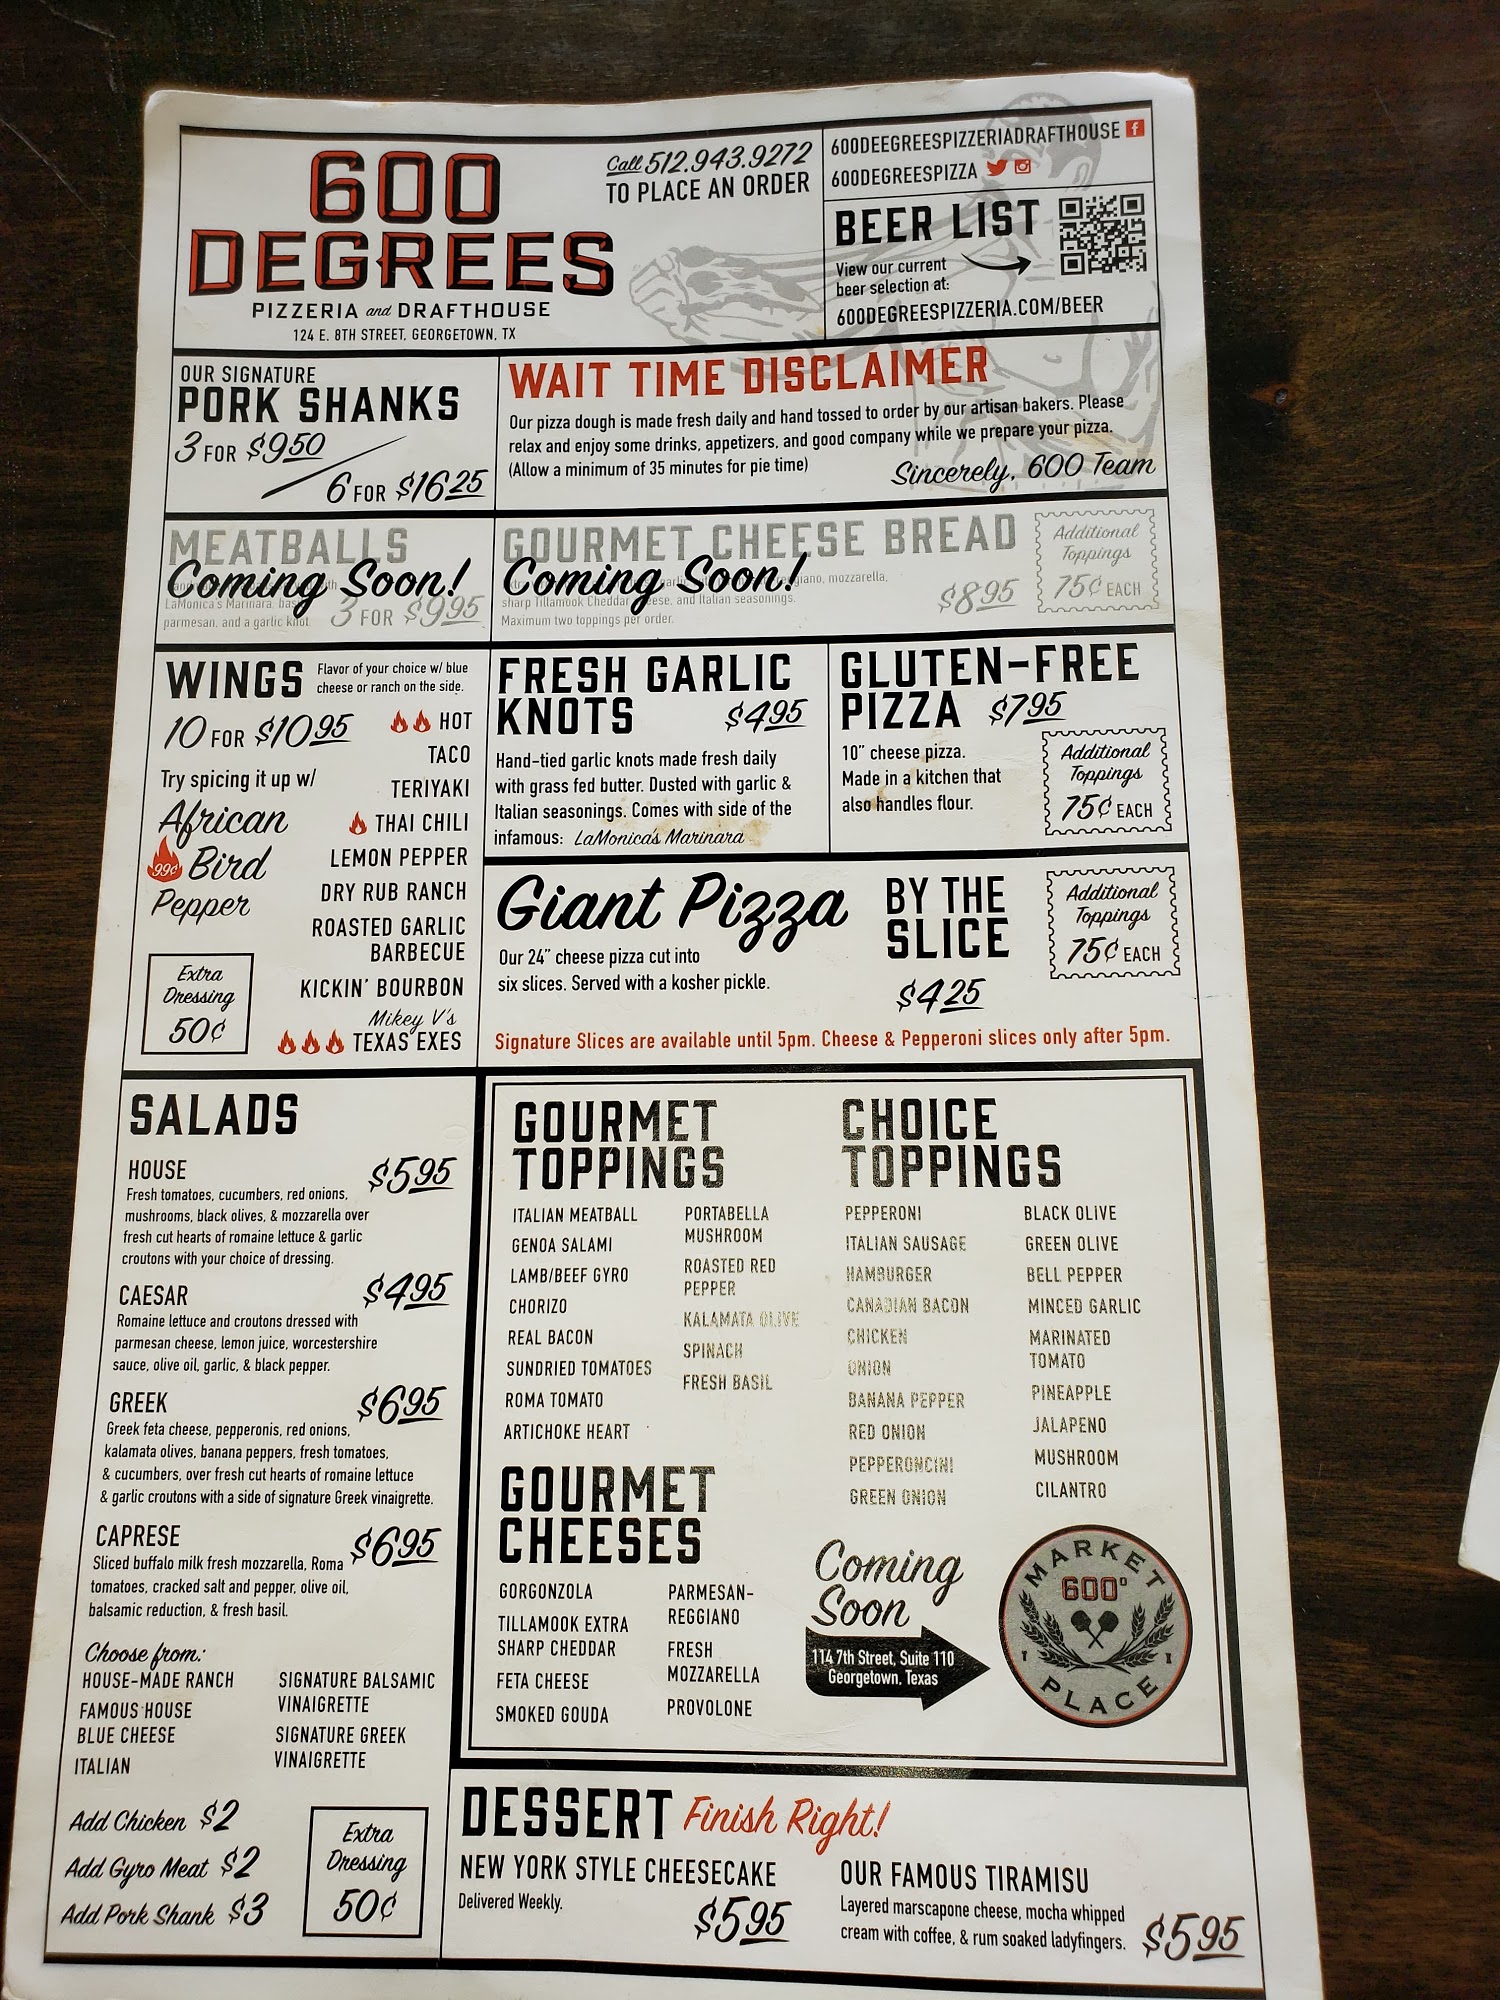 600
DEGREES
PIZZERIA and DRAFTHOUSE
124 E. 8TH STREET, GEORGETOWN, TX
Call 512.943.9272
TO PLACE AN ORDER
600DEEGREESPIZZERIADRAFTHOUSE
600DEGREESPIZZA
BEER LIST
View our current
beer selection at:
600DEGREESPIZZERIA.COM/BEER
OUR SIGNATURE
PORK SHANKS
3 FOR $9.50
6 FOR $16.25
WAIT TIME DISCLAIMER
Our pizza dough is made fresh daily and hand tossed to order by our artisan bakers. Please
relax and enjoy some drinks, appetizers, and good company while we prepare your pizza.
(Allow a minimum of 35 minutes for pie time)
Sincerely, 600 Team
MEATBALLS
Coming Soon!
LaMonica's Marinara,
parmesan, and a garlic knot.
3 FOR $9.95
GOURMET CHEESE BREAD
Coming Soon!
mozzarella,
sharp Tillamook Cheddar cheese, and Italian seasonings.
Maximum two toppings per order.
$8.95
Additional
Toppings
75¢ EACH
WINGS
Flavor of your choice w/ blue
cheese or ranch on the side.
10 FOR $10.95
Try spicing it up w/
African
99¢ Bird
Pepper
HOT
TACO
TERIYAKI
THAI CHILI
LEMON PEPPER
DRY RUB RANCH
ROASTED GARLIC
BARBECUE
KICKIN' BOURBON
Mikey V's
TEXAS EXES
Extra
Dressing
50¢
FRESH GARLIC
KNOTS $4.95
Hand-tied garlic knots made fresh daily
with grass fed butter. Dusted with garlic &
Italian seasonings. Comes with side of the
infamous: LaMonica's Marinara
GLUTEN-FREE
PIZZA $7.95
10" cheese pizza.
Made in a kitchen that
also handles flour.
Additional
Toppings
75¢ EACH
Giant Pizza
BY THE
SLICE
$4.25
Our 24" cheese pizza cut into
six slices. Served with a kosher pickle.
Additional
Toppings
75¢ EACH
Signature Slices are available until 5pm. Cheese & Pepperoni slices only after 5pm.
SALADS
HOUSE $5.95
Fresh tomatoes, cucumbers, red onions,
mushrooms, black olives, & mozzarella over
fresh cut hearts of romaine lettuce & garlic
croutons with your choice of dressing.
CAESAR $4.95
Romaine lettuce and croutons dressed with
parmesan cheese, lemon juice, worcestershire
sauce, olive oil, garlic, & black pepper.
GREEK $6.95
Greek feta cheese, pepperonis, red onions,
kalamata olives, banana peppers, fresh tomatoes,
& cucumbers, over fresh cut hearts of romaine lettuce
& garlic croutons with a side of signature Greek vinaigrette.
CAPRESE $6.95
Sliced buffalo milk fresh mozzarella, Roma
tomatoes, cracked salt and pepper, olive oil,
balsamic reduction, & fresh basil.
Choose from:
HOUSE-MADE RANCH
FAMOUS HOUSE
BLUE CHEESE
ITALIAN
SIGNATURE BALSAMIC
VINAIGRETTE
SIGNATURE GREEK
VINAIGRETTE
Add Chicken $2
Add Gyro Meat $2
Add Pork Shank $3
Extra
Dressing
50¢
GOURMET
TOPPINGS
ITALIAN MEATBALL
GENOA SALAMI
LAMB/BEEF GYRO
CHORIZO
REAL BACON
SUNDRIED TOMATOES
ROMA TOMATO
ARTICHOKE HEART
PORTABELLA
MUSHROOM
ROASTED RED
PEPPER
KALAMATA OLIVE
SPINACH
FRESH BASIL
CHOICE
TOPPINGS
PEPPERONI
ITALIAN SAUSAGE
HAMBURGER
CANADIAN BACON
CHICKEN
ONION
BANANA PEPPER
RED ONION
PEPPERONCINI
GREEN ONION
BLACK OLIVE
GREEN OLIVE
BELL PEPPER
MINCED GARLIC
MARINATED
TOMATO
PINEAPPLE
JALAPENO
MUSHROOM
CILANTRO
GOURMET
CHEESES
GORGONZOLA
TILLAMOOK EXTRA
SHARP CHEDDAR
FETA CHEESE
SMOKED GOUDA
PARMESAN-
REGGIANO
FRESH
MOZZARELLA
PROVOLONE
Coming
Soon
114 7th Street, Suite 110
Georgetown, Texas
MARKET
600°
PLACE
DESSERT Finish Right!
NEW YORK STYLE CHEESECAKE
Delivered Weekly.
$5.95
OUR FAMOUS TIRAMISU
Layered marscapone cheese, mocha whipped
cream with coffee, & rum soaked ladyfingers.
$5.95